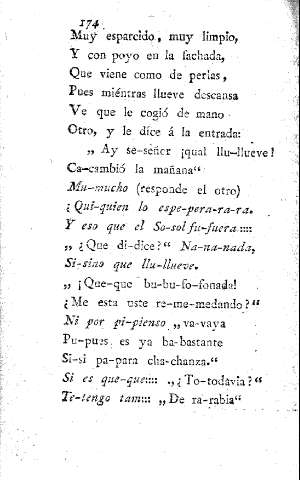 174
Muy esparcido, muy limpio,
Y con poyo en la fachada,
Que viene como de perlas,
Pues miéntras llueve descansa
Ve que le cogió de mano
Otro, y le dice á la entrada:
„ Ay se-señor ¡qual llu-llueve!
Ca-cambió la mañana“
Mu-mucho (responde el otro)
¿Qui-quien lo espe-pera-ra-ra.
Y eso que el So-sol fu-fuera::::
„ ¿Que di-dice?“ Na-na-nada,
Si-sino que llu-llueve.
„ ¡Que-que bu-bu-fo-fonada!
¿Me esta uste re-me-medando?“
Ni por pi-pienso „va-vaya
Pu-pues es ya ba-bastante
Si-si pa-para cha-chanza.“
Si es que-que:::: „¿To-todavia?“
Te-tengo tam:::: „De ra-rabia“